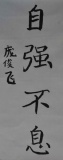 自强不息
庞俊飞